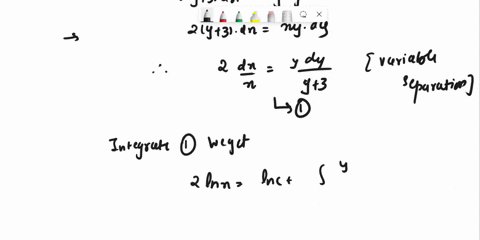 → 2(y+3)·dx = xy·dy
∴ 2 dx/x = y dy/y+3 [variable separation]
↳ ①
Integrate ① we get
2 lnx = lnc + ∫ y